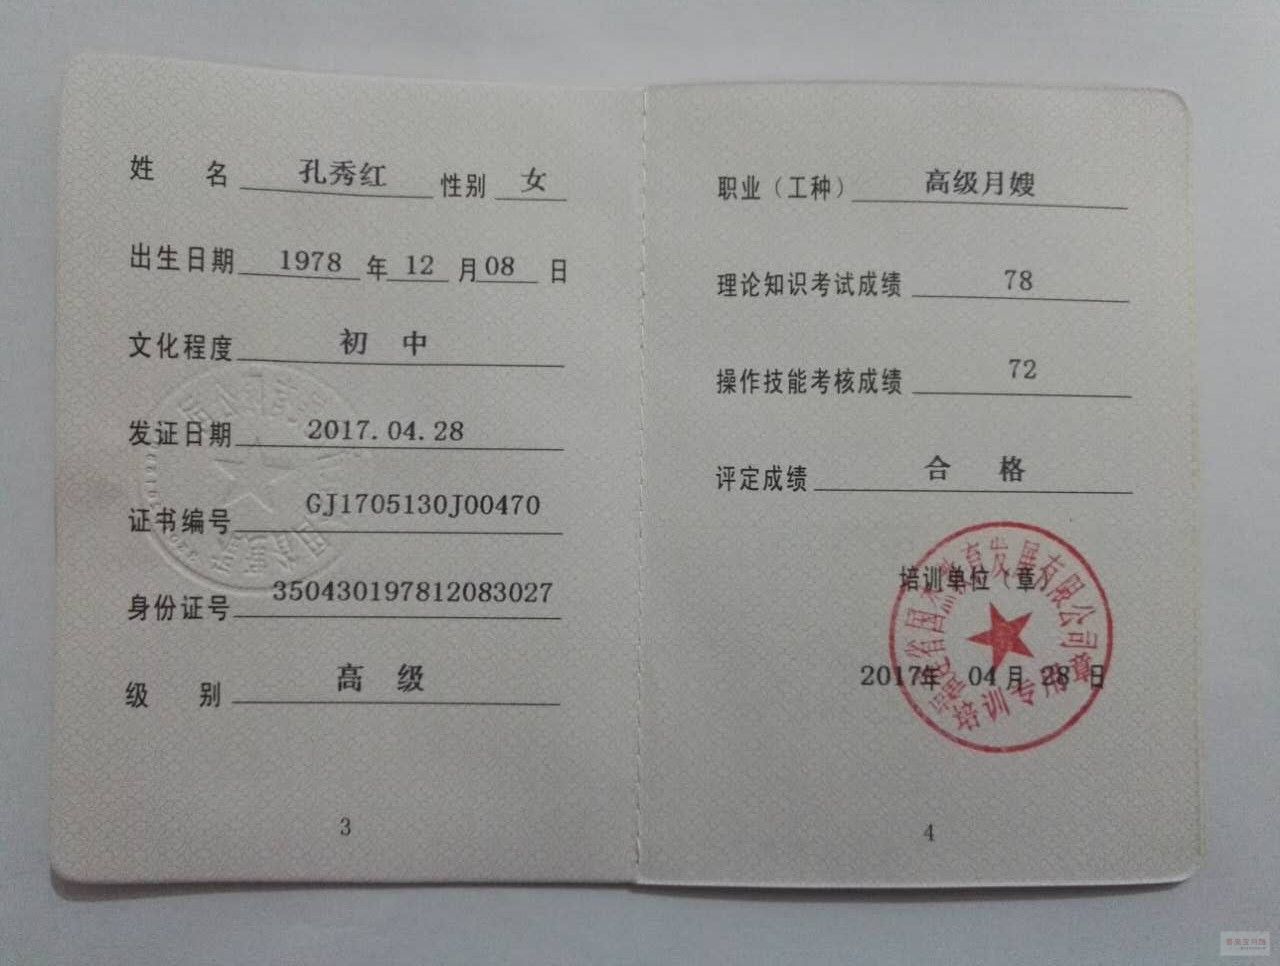 姓 名 孔秀红 性别 女
出生日期 1978 年 12 月 08 日
文化程度 初 中
发证日期 2017.04.28
证书编号 GJ1705130J00470
身份证号 350430197812083027
级 别 高 级
3
职业（工种） 高级月嫂
理论知识考试成绩 78
操作技能考核成绩 72
评定成绩 合 格
培训单位（章）
2017年 04月 28日
福建省国 教育发展有限公司
培训专用章
4